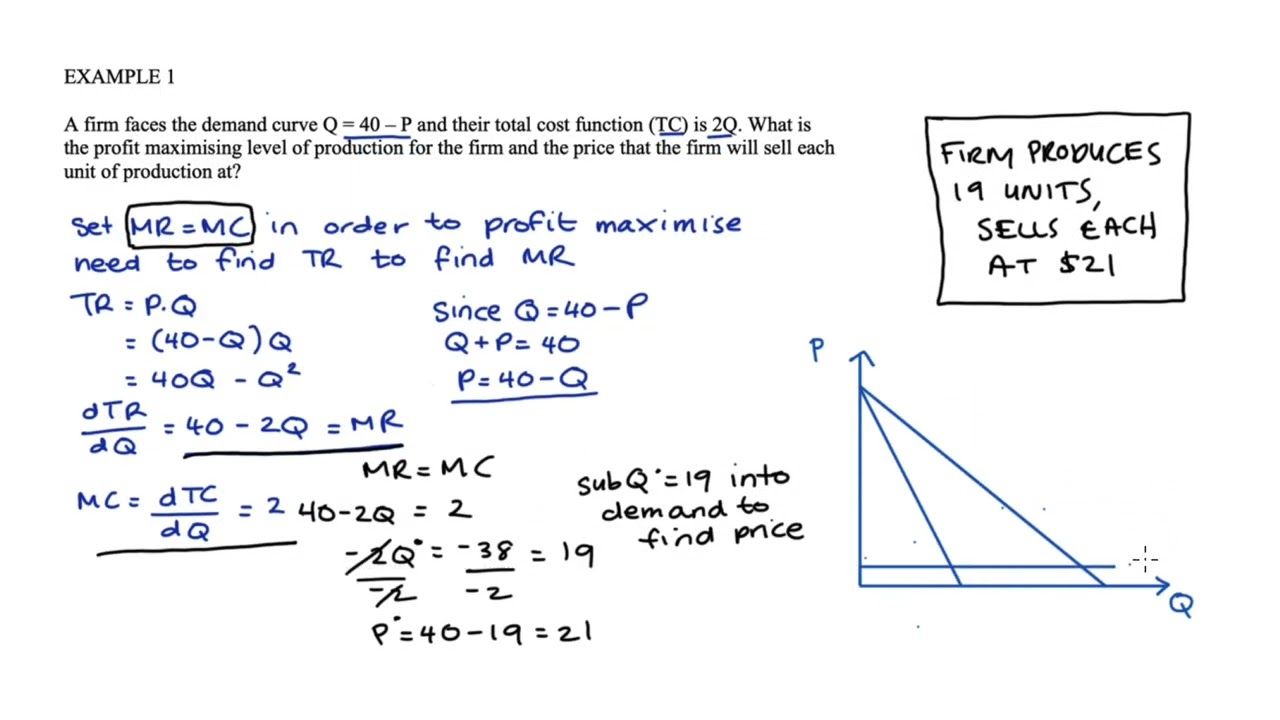 EXAMPLE 1
A firm faces the demand curve Q = 40 – P and their total cost function (TC) is 2Q. What is
the profit maximising level of production for the firm and the price that the firm will sell each
unit of production at?
Set MR = MC in order to profit maximise
need to find TR to find MR
TR = P.Q
= (40-Q)Q
= 40Q - Q²
dTR/dQ = 40 - 2Q = MR
MC = dTC/dQ = 2
Since Q = 40 - P
Q + P = 40
P = 40 - Q
MR = MC
40 - 2Q = 2
-2Q*/-2 = -38/-2 = 19
P* = 40 - 19 = 21
sub Q* = 19 into
demand to
find price
FIRM PRODUCES
19 UNITS,
SELLS EACH
AT $21
P
Q